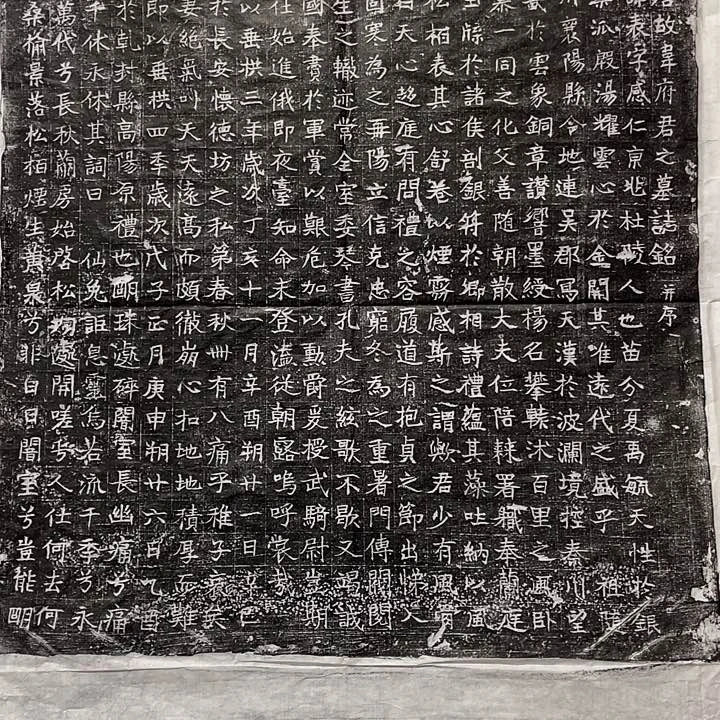 君故韋府君之墓誌銘 并序
諱表字感仁京兆杜陵人也苗分夏禹毓天性於銀
派殷湯耀雲心於金開其唯遠代之盛乎 祖陵
州襄陽縣令地連吳郡冩天漢於波瀾境控秦川望
於雲象銅章讚響墨綬楊名攀轅沭百里之風卧
一同之化父善随朝散大夫位陪棘署職奉蘭庭
於諸侯剖銀符於鄉相詩禮蘊其藻吐納以風
松栢表其心舒卷以煙霧感斯之謂歟君少有風
天心趍庭有問禮之容履道有抱貞之節出悌入
回寒為之再陽立信克忠窮冬為之重暑門傳閥閱
生之轍迹常全室委琴書孔夫之絃歌不歇又竭誠
國奉賣於軍賞以艱危加以勳爵爰授武騎尉豈期
仕始進俄即夜臺知命未登溘從朝露嗚呼哀哉
以垂拱三年歲次丁亥十一月辛酉朔廿一日辛巳
於長安懷德坊之私第春秋卌有八痛乎稚子哀矣
妻絶氣叫天天遠高而頗徹崩心扣地地積厚而難
即以垂拱四年歲次戊子正月庚申朔廿六日乙酉
於乹封縣高陽原禮也酮珠邃碎闇室長幽痛兮痛
千休永休其詞曰 仙兔詎息靈烏若流千年兮永
萬代兮長秋蘭房始啓松埛邃開嗟兮久仕何去何
桑榆景落松栢煙生黄泉兮非白日闇室兮豈能明